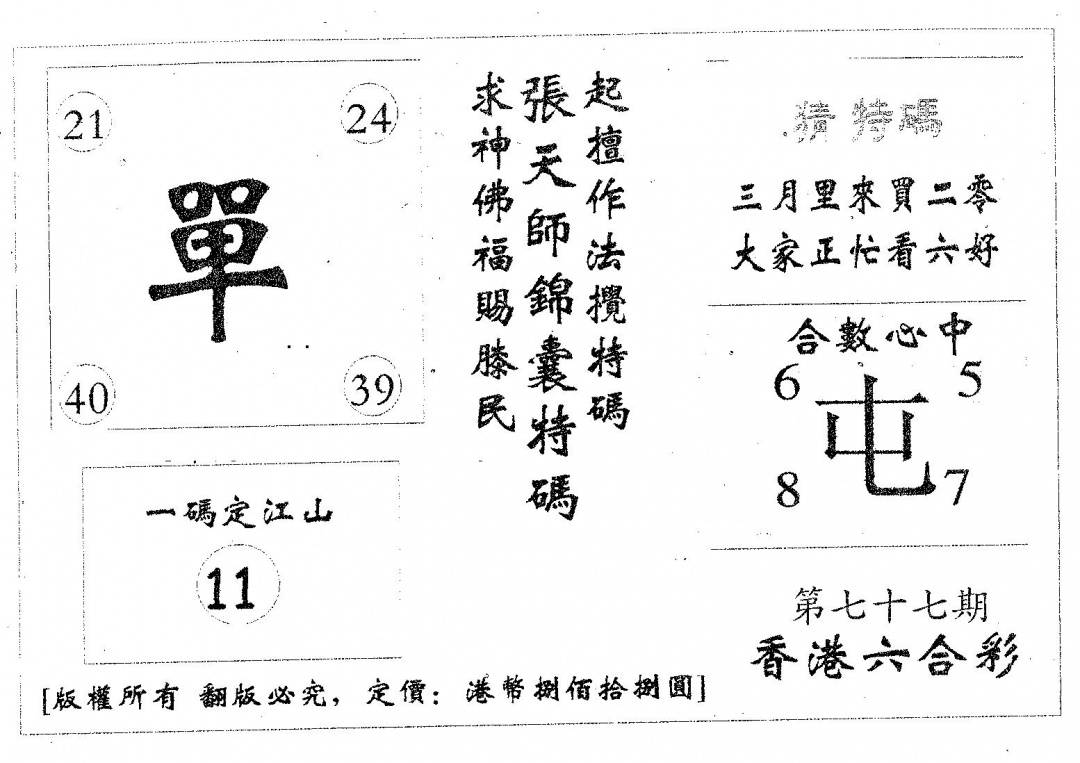 21
24
單
40
39
一碼定江山
11
起擅作法攪特碼
張天師錦囊特碼
求神佛福賜滕民
猜特碼
三月里來買二零
大家正忙看六好
合數心中
6
5
屯
8
7
第七十七期
香港六合彩
[版權所有 翻版必究，定價：港幣捌佰拾捌圓]